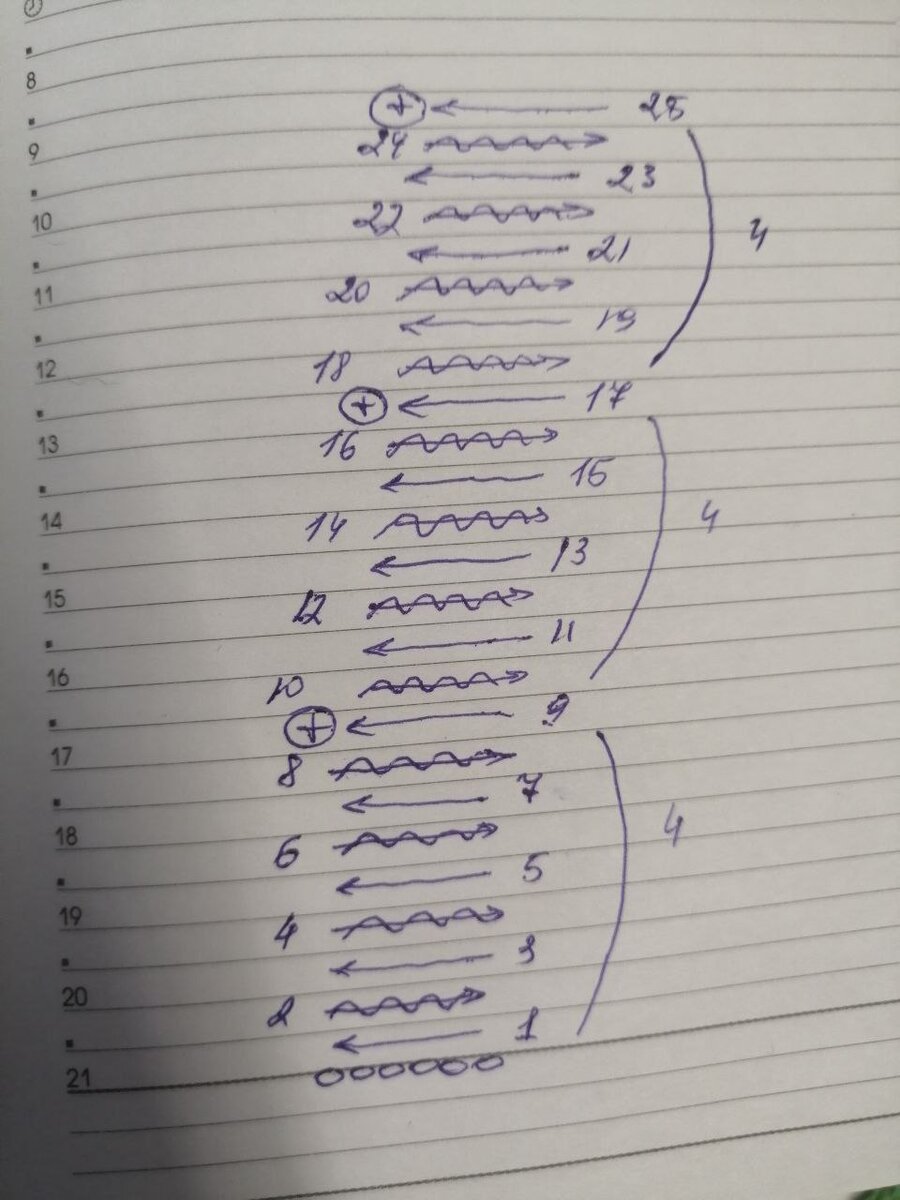 8
⊕ ← 25
9 24 →
← 23
10 22 →
← 21 4
11 20 →
← 19
12 18 →
⊕ ← 17
13 16 →
← 15
14 14 → 4
← 13
15 12 →
← 11
16 10 →
⊕ ← 9
17 8 →
← 7
18 6 → 4
← 5
19 4 →
← 3
20 2 →
← 1
21 oooooo